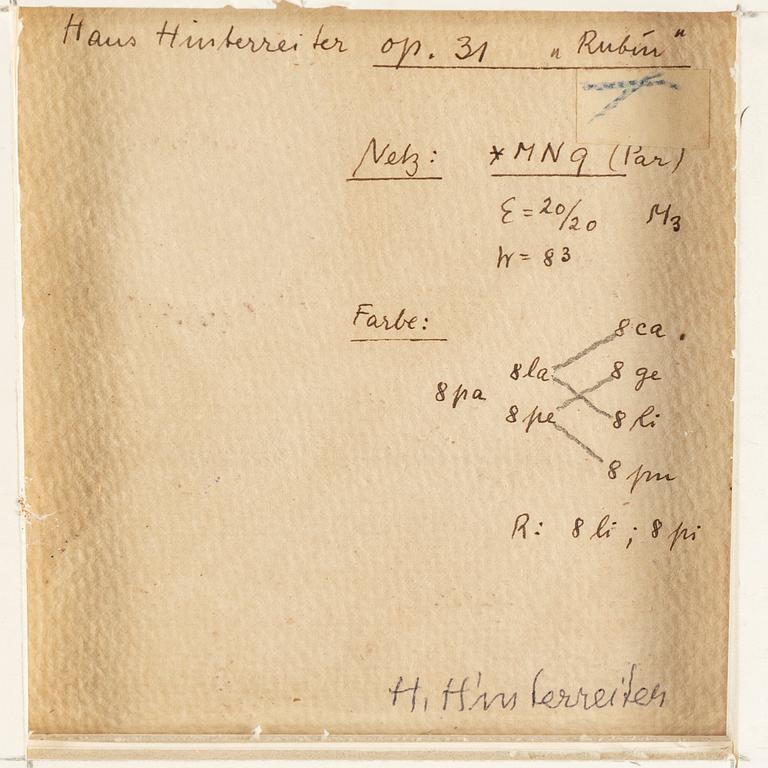 Hans Hinterreiter op. 31 „Rubin"
Netz: *MN9 (Par)
ε = 20/20 M3
W = 83
Farbe:
8 ca .
8 la 8 ge
8 pa
8 pe 8 li
8 pu
R: 8 li ; 8 pi
H. Hinterreiter